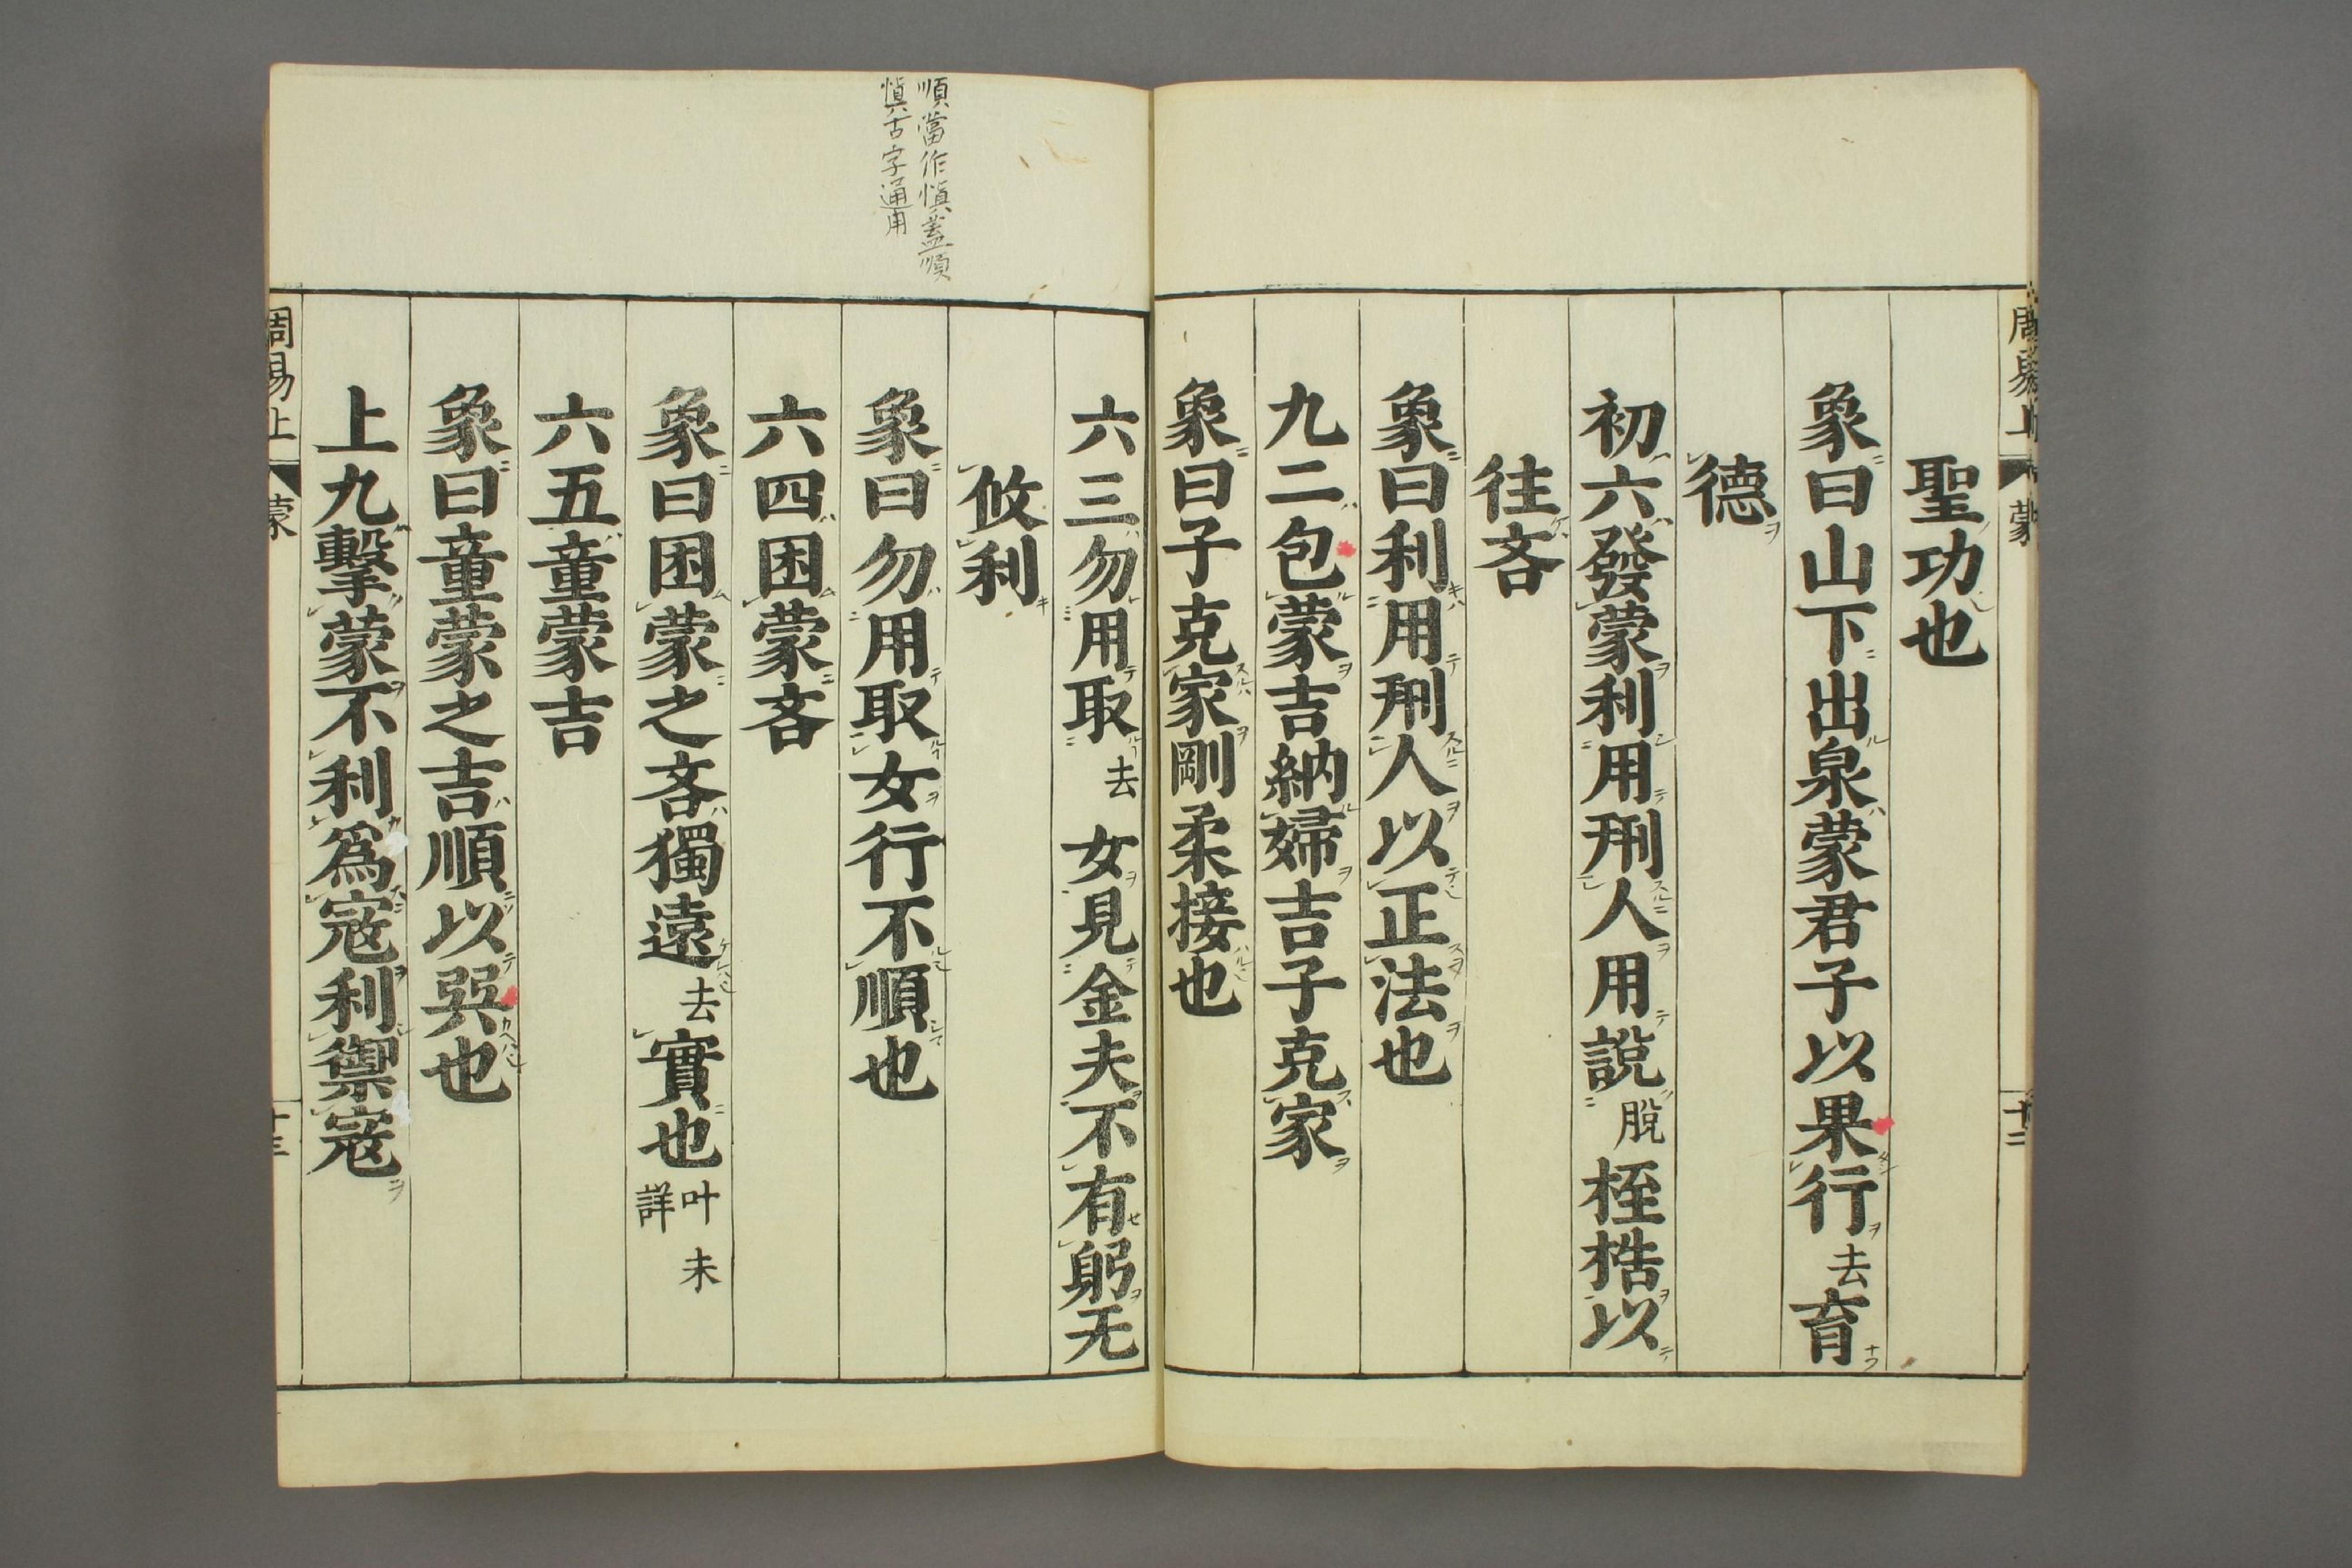 周易上 蒙 十二
聖功也
象曰山下出泉蒙君子以果行去育
德
初六發蒙利用刑人用說脫桎梏以
往吝
象曰利用刑人以正法也
九二包蒙吉納婦吉子克家
象曰子克家剛柔接也
順當作愼蓋順
愼古字通用
六三勿用取去女見金夫不有躬无
攸利
象曰勿用取女行不順也
六四困蒙吝
象曰困蒙之吝獨遠去實也叶未詳
六五童蒙吉
象曰童蒙之吉順以巽也
上九擊蒙不利爲寇利禦寇
周易上 蒙 十三